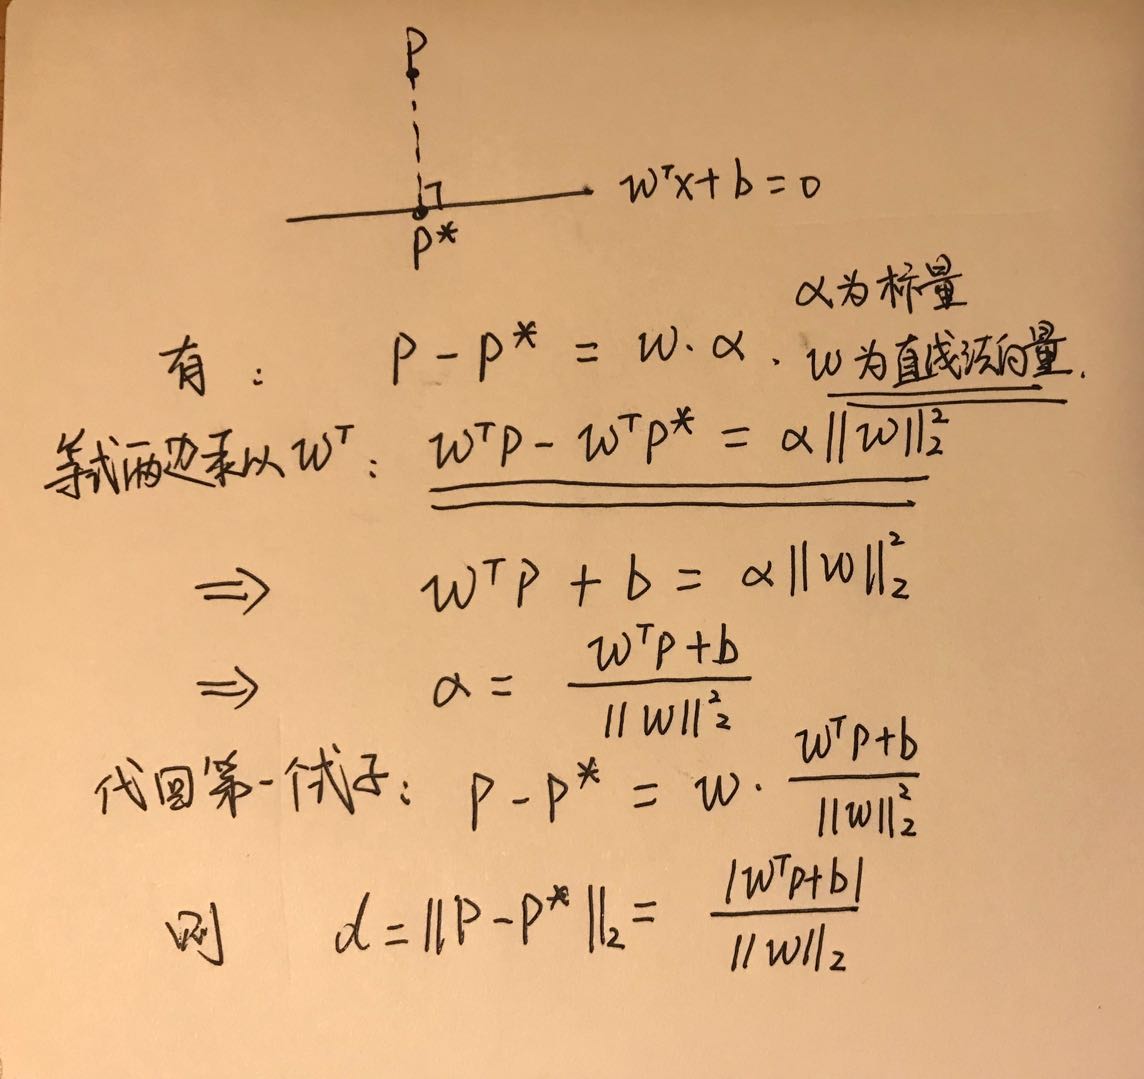 P
wᵀx+b=0
P*
α为标量
有: P-P* = w·α. w为直线法向量.
等式两边乘以wᵀ: wᵀP - wᵀP* = α||w||₂²
⇒ wᵀP + b = α||w||₂²
⇒ α = (wᵀP+b)/||w||₂²
代回第一个式子: P-P* = w·(wᵀP+b)/||w||₂²
则 d=||P-P*||₂= |wᵀP+b|/||w||₂